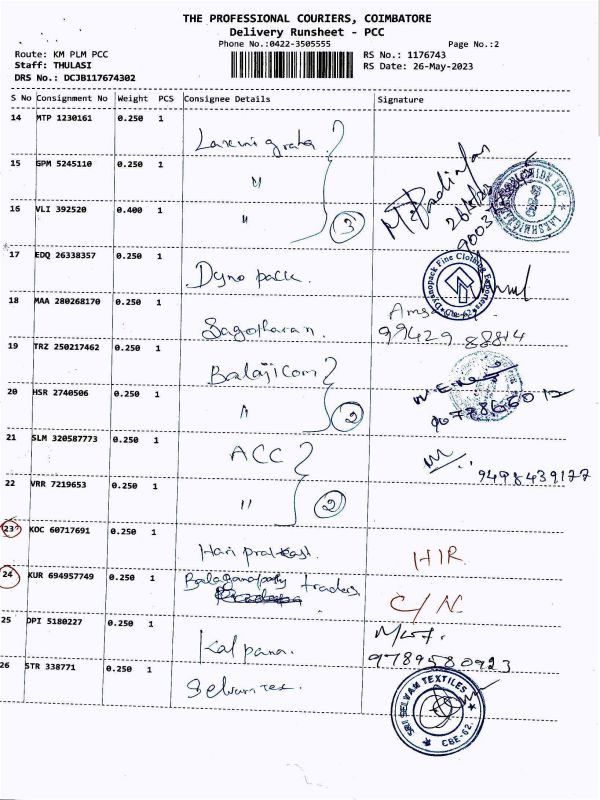 THE PROFESSIONAL COURIERS, COIMBATORE
Delivery Runsheet - PCC
Phone No.:0422-3505555 Page No.:2
Route: KM PLM PCC RS No.: 1176743
Staff: THULASI RS Date: 26-May-2023
DRS No.: DCJB117674302
S No Consignment No Weight PCS Consignee Details Signature
14 MTP 1230161 0.250 1
15 GPM 5245110 0.250 1
"
16 VLI 392520 0.400 1
" 3
26/5/23
17 EDQ 26338357 0.250 1
Dyno pack.
Dynopack Fine Clothing Exporters
18 MAA 280268170 0.250 1
99429 88814
19 TRZ 250217462 0.250 1
Balajicom
20 HSR 2740506 0.250 1
" 2
21 SLM 320587773 0.250 1
ACC
9498439177
22 VRR 7219653 0.250 1
" 2
23 KOC 60717691 0.250 1
Hari
H/R
24 KUR 694957749 0.250 1
traders
C/N
25 OPI 5180227 0.250 1
Kalpana.
9789580923
26 STR 338771 0.250 1
Selvamtex.
SRI SELVAM TEXTILES
CBE-62.